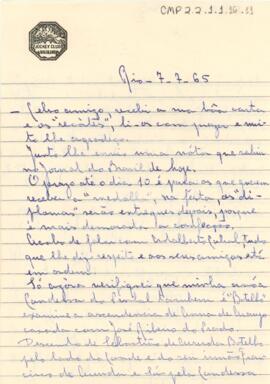 CMP 2.2.1.1.10.11
JOCKEY CLUB
Rio - 7-7-65
- Caro amigo, recebi a sua bôa carta
e os "recados", li-os com prazer e mui-
to lhe agradeço.
Junto lhe envio uma nota que saiu
no Jornal do Brasil de hoje.
O prazo até o dia 10 é para os que querem
receber a "medalha", na festa, os "di-
plomas" serão entregues depois, porque
é mais demorada a confecção.
Acabo de falar com Adalberto Cabral, tudo
que lhe diz respeito e aos seus amigos está
em ordem.
Só agora verifiquei que minha
Condessa do "Botelho"
examine a ascendencia de Anna de Araujo
casada com José
Descendo de Sebastião de Arruda Botelho
pelo lado do Conde e do seu irmão Fran-
cisco de Arruda e Sá pela Condessa